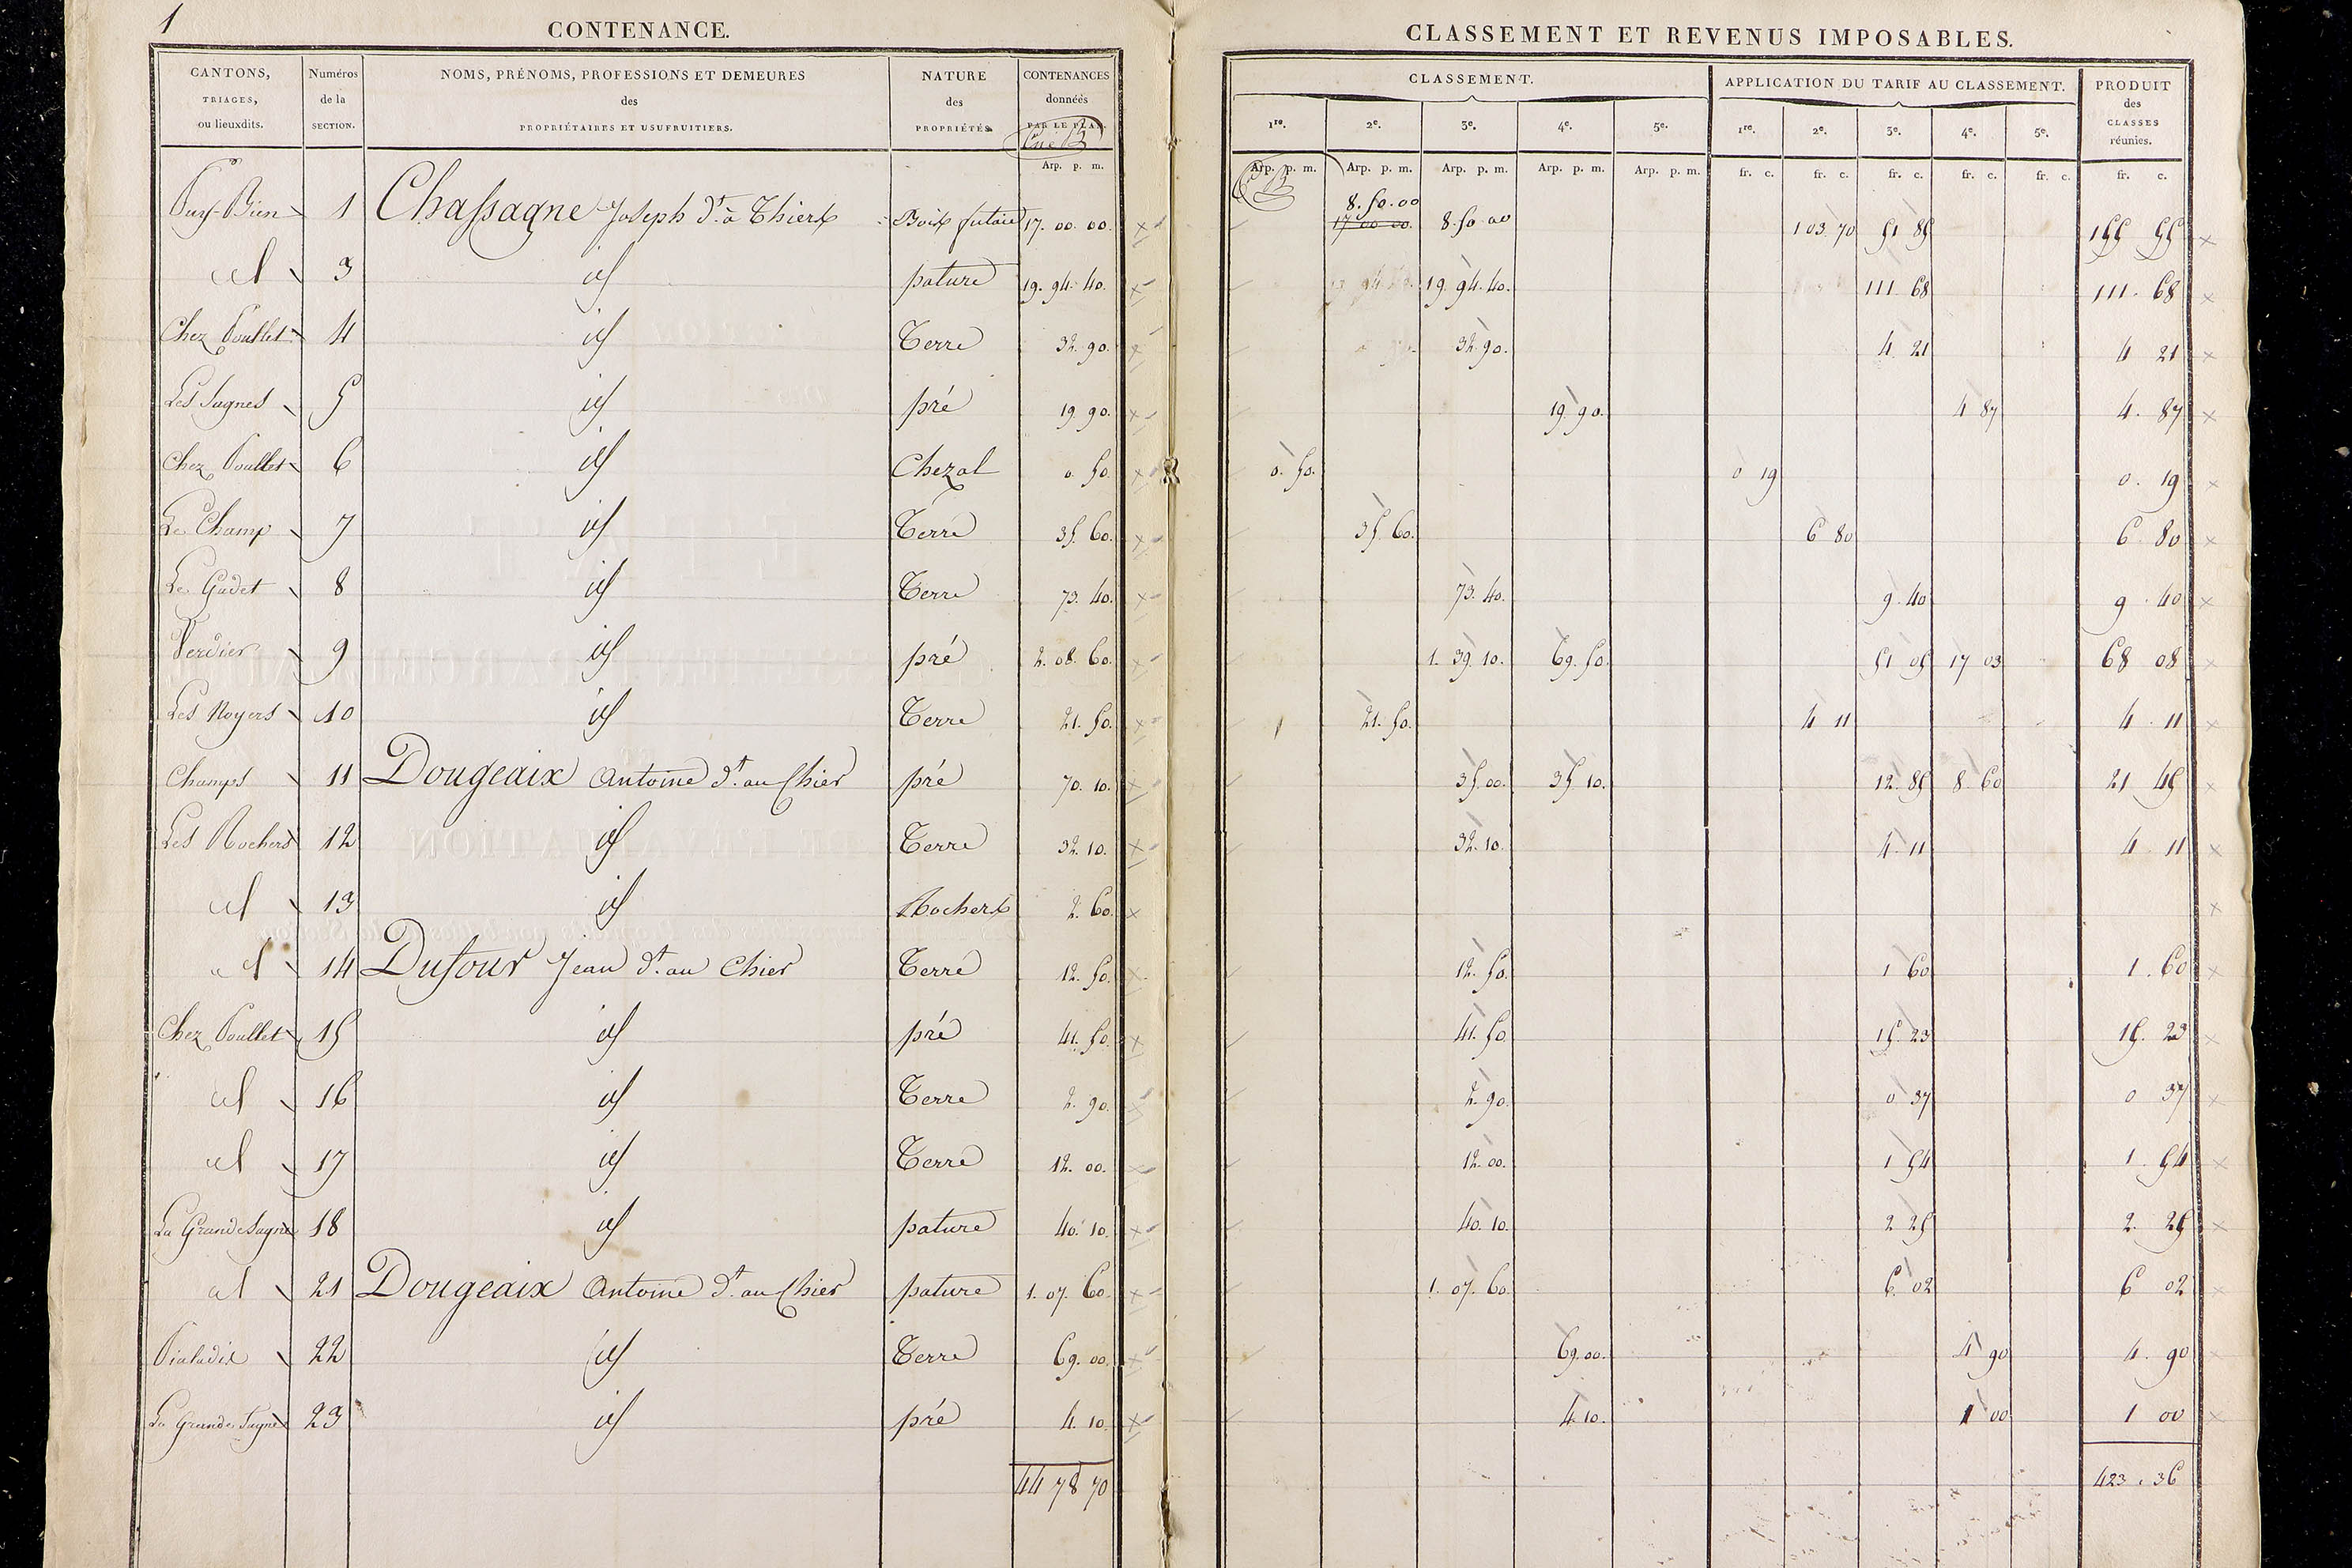 1
CONTENANCE.
CANTONS, TRIAGES, ou lieuxdits. Numéros de la SECTION. NOMS, PRÉNOMS, PROFESSIONS ET DEMEURES des PROPRIÉTAIRES ET USUFRUITIERS. NATURE des PROPRIÉTÉS. CONTENANCES données PAR LE PLAN.
Arp. p. m.
CLASSEMENT ET REVENUS IMPOSABLES.
CLASSEMENT. APPLICATION DU TARIF AU CLASSEMENT. PRODUIT des CLASSES réunies.
1re. 2e. 3e. 4e. 5e. 1re. 2e. 3e. 4e. 5e.
Arp. p. m. Arp. p. m. Arp. p. m. Arp. p. m. Arp. p. m. fr. c. fr. c. fr. c. fr. c. fr. c. fr. c.
8.50.00
Puy-Bien 1 Chassagne Joseph dt. à Thiers Bois futaie 17. 00. 00. 17 00 00. 8. 50 00 103. 70 51 85 155 55
id 3 id pature 19. 94. 40. 19. 94. 40. 111. 68 111. 68
Chez Poullet 4 id Terre 32. 90. 32. 90. 4. 21 4 21
Les Sagnes 5 id pré 19. 90. 19. 90. 4 87 4. 87
Chez Poullet 6 id Chezal 0. 50. 0. 50. 0 19 0. 19
Le Champ 7 id Terre 35. 60. 35. 60. 6 80 6 80
Le Gadet 8 id Terre 73. 40. 73. 40. 9. 40 9. 40
Verdier 9 id pré 2. 08. 60. 1. 39. 10. 69. 50. 51 05 17 03 68 08
Les Noyers 10 id Terre 21. 50. 21. 50. 4 11 4. 11
Champs 11 Dougeaix Antoine dt. au Chier pré 70. 10. 35. 00. 35 10. 12. 85 8. 60 21 45
Les Rochers 12 id Terre 32. 10. 32. 10. 4. 11 4. 11
id 13 id Rochers 2. 60.
id 14 Dufour Jean dt. au Chier Terre 12. 50. 12. 50. 1 60 1. 60
Chez Poullet 15 id pré 41. 50. 41. 50. 15. 23 15. 23
id 16 id Terre 2. 90. 2. 90. 0 37 0 37
id 17 id Terre 12. 00. 12. 00. 1 54 1. 54
La Grande Sagne 18 id pature 40. 10. 40. 10. 2 25 2. 25
id 21 Dougeaix Antoine dt. au Chier pature 1. 07. 60. 1. 07. 60. 6. 02 6 02
22 id Terre 69. 00. 69. 00. 4 90 4. 90
La Grande Sagne 23 id pré 4. 10. 4. 10. 1 00 1 00
44 78 70 423. 36